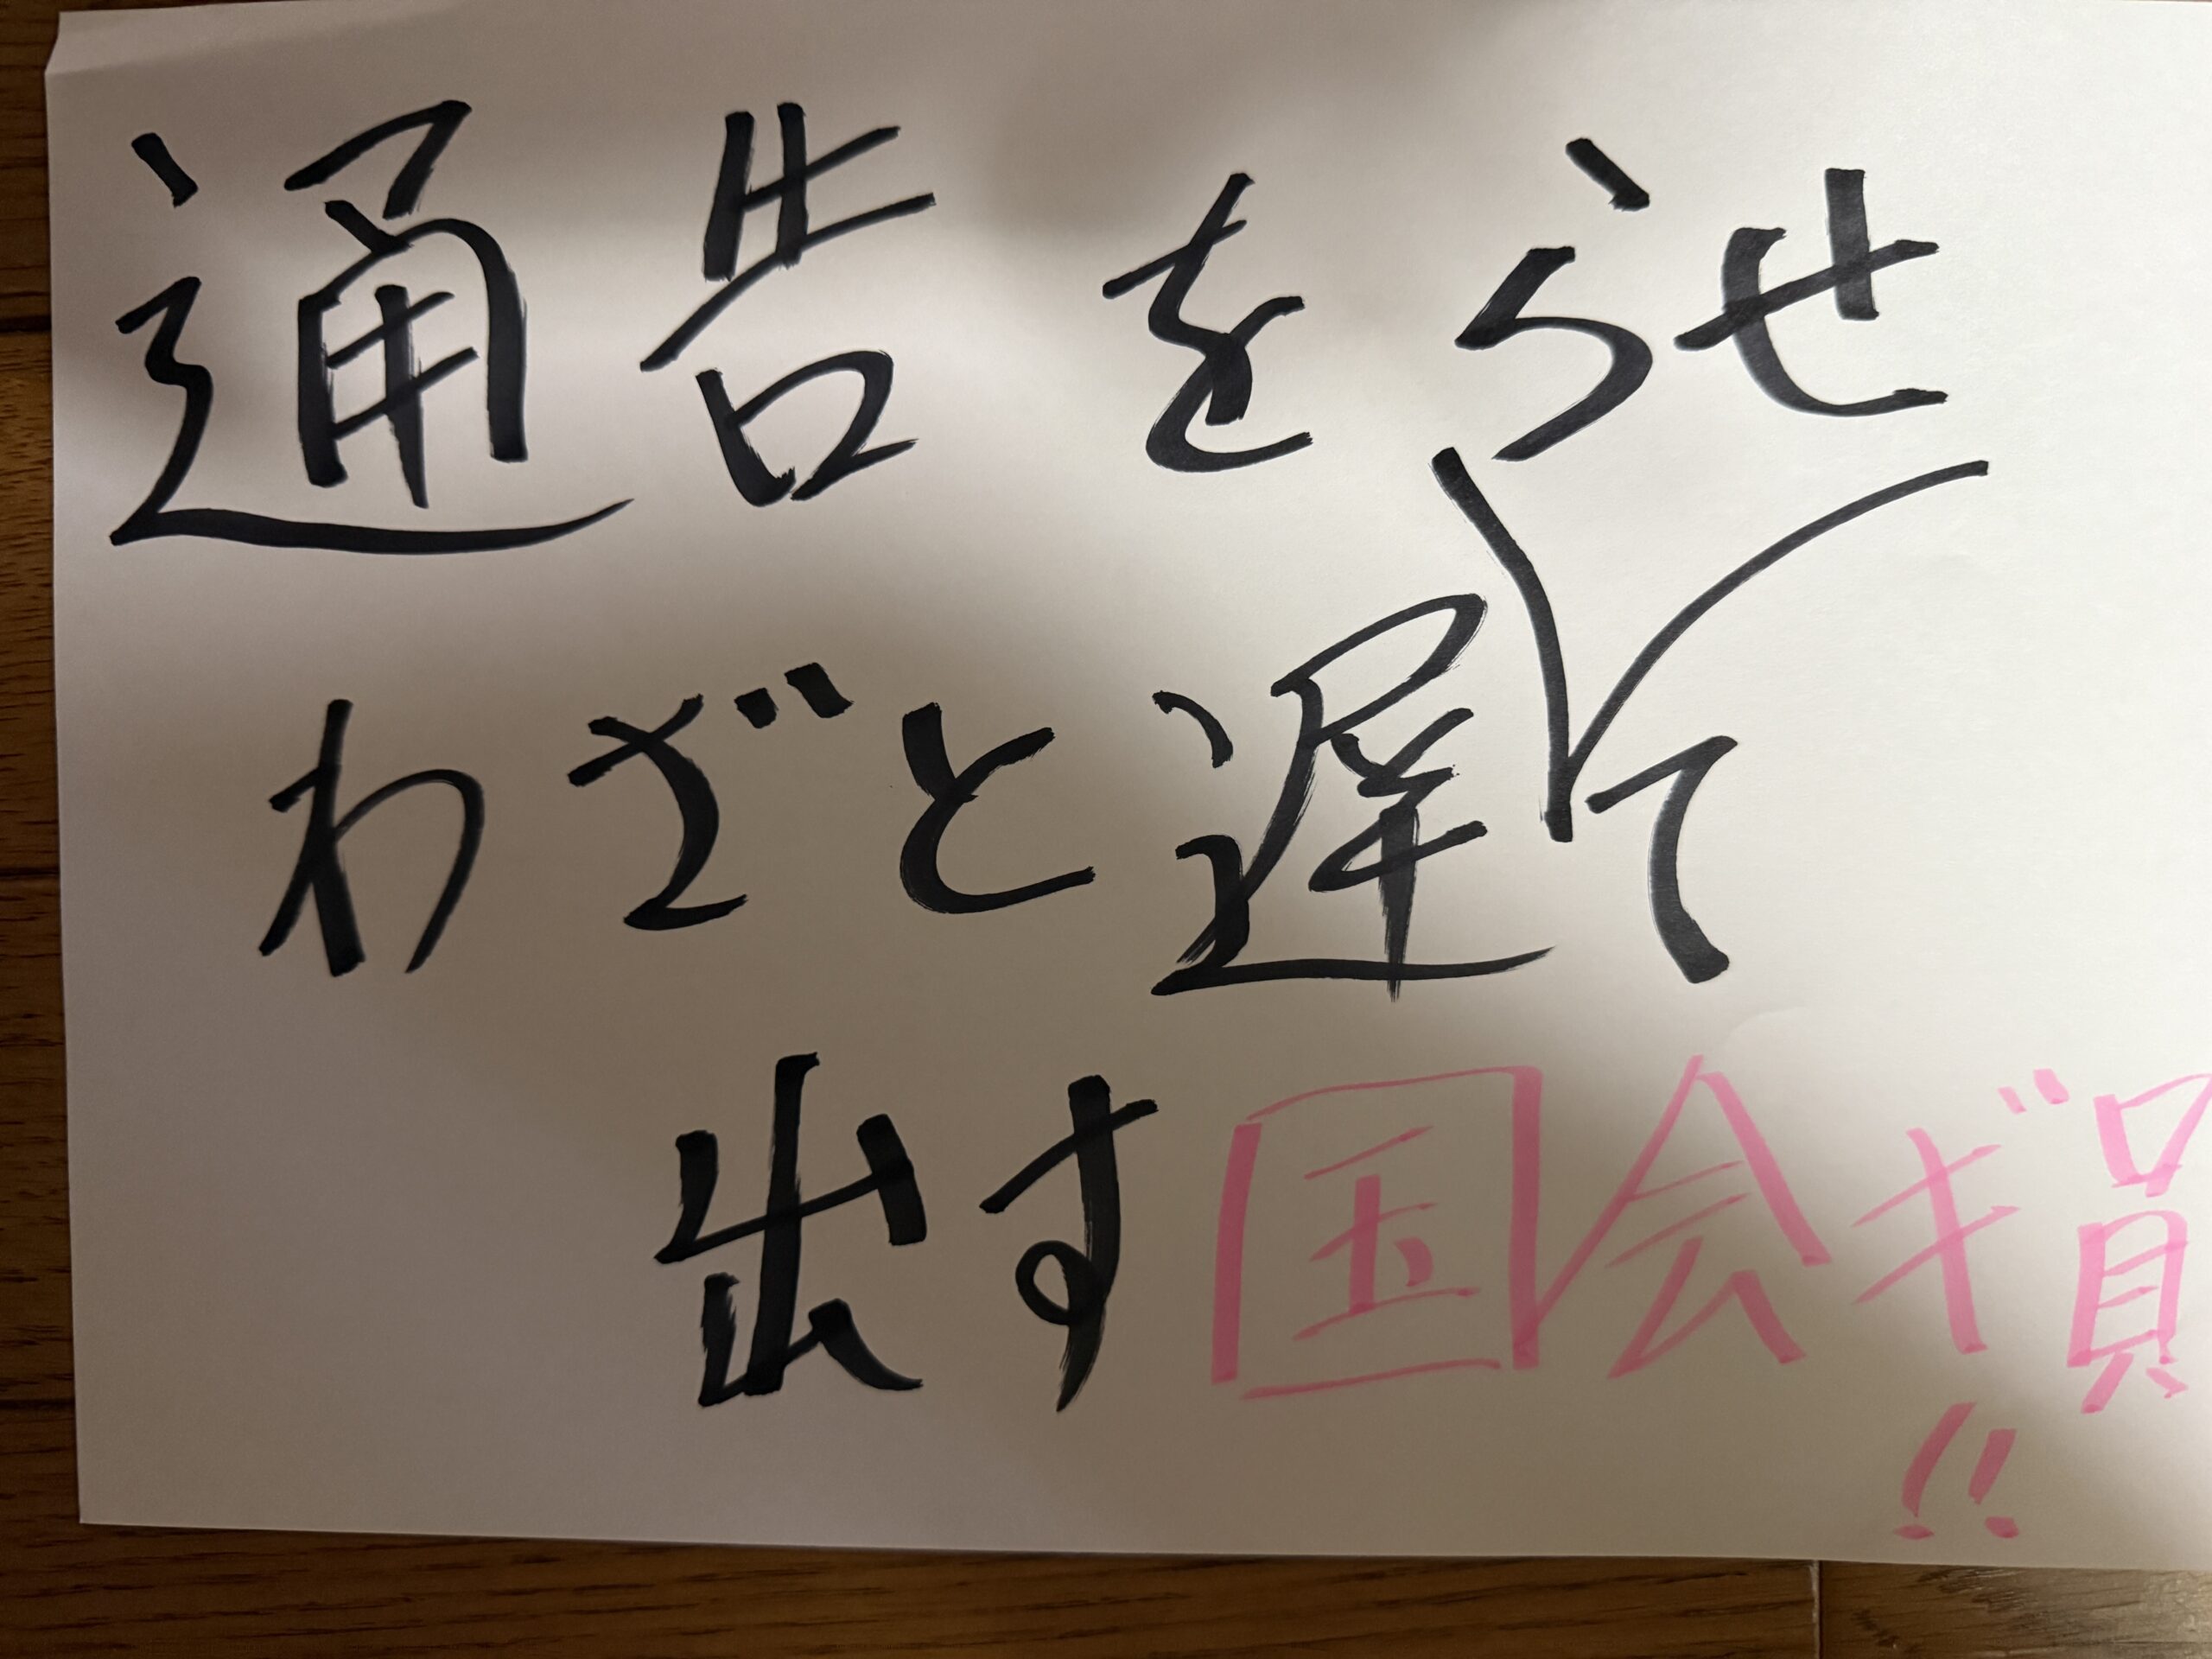 通告を
わざと遅らせて
出す国会ギ員
!!